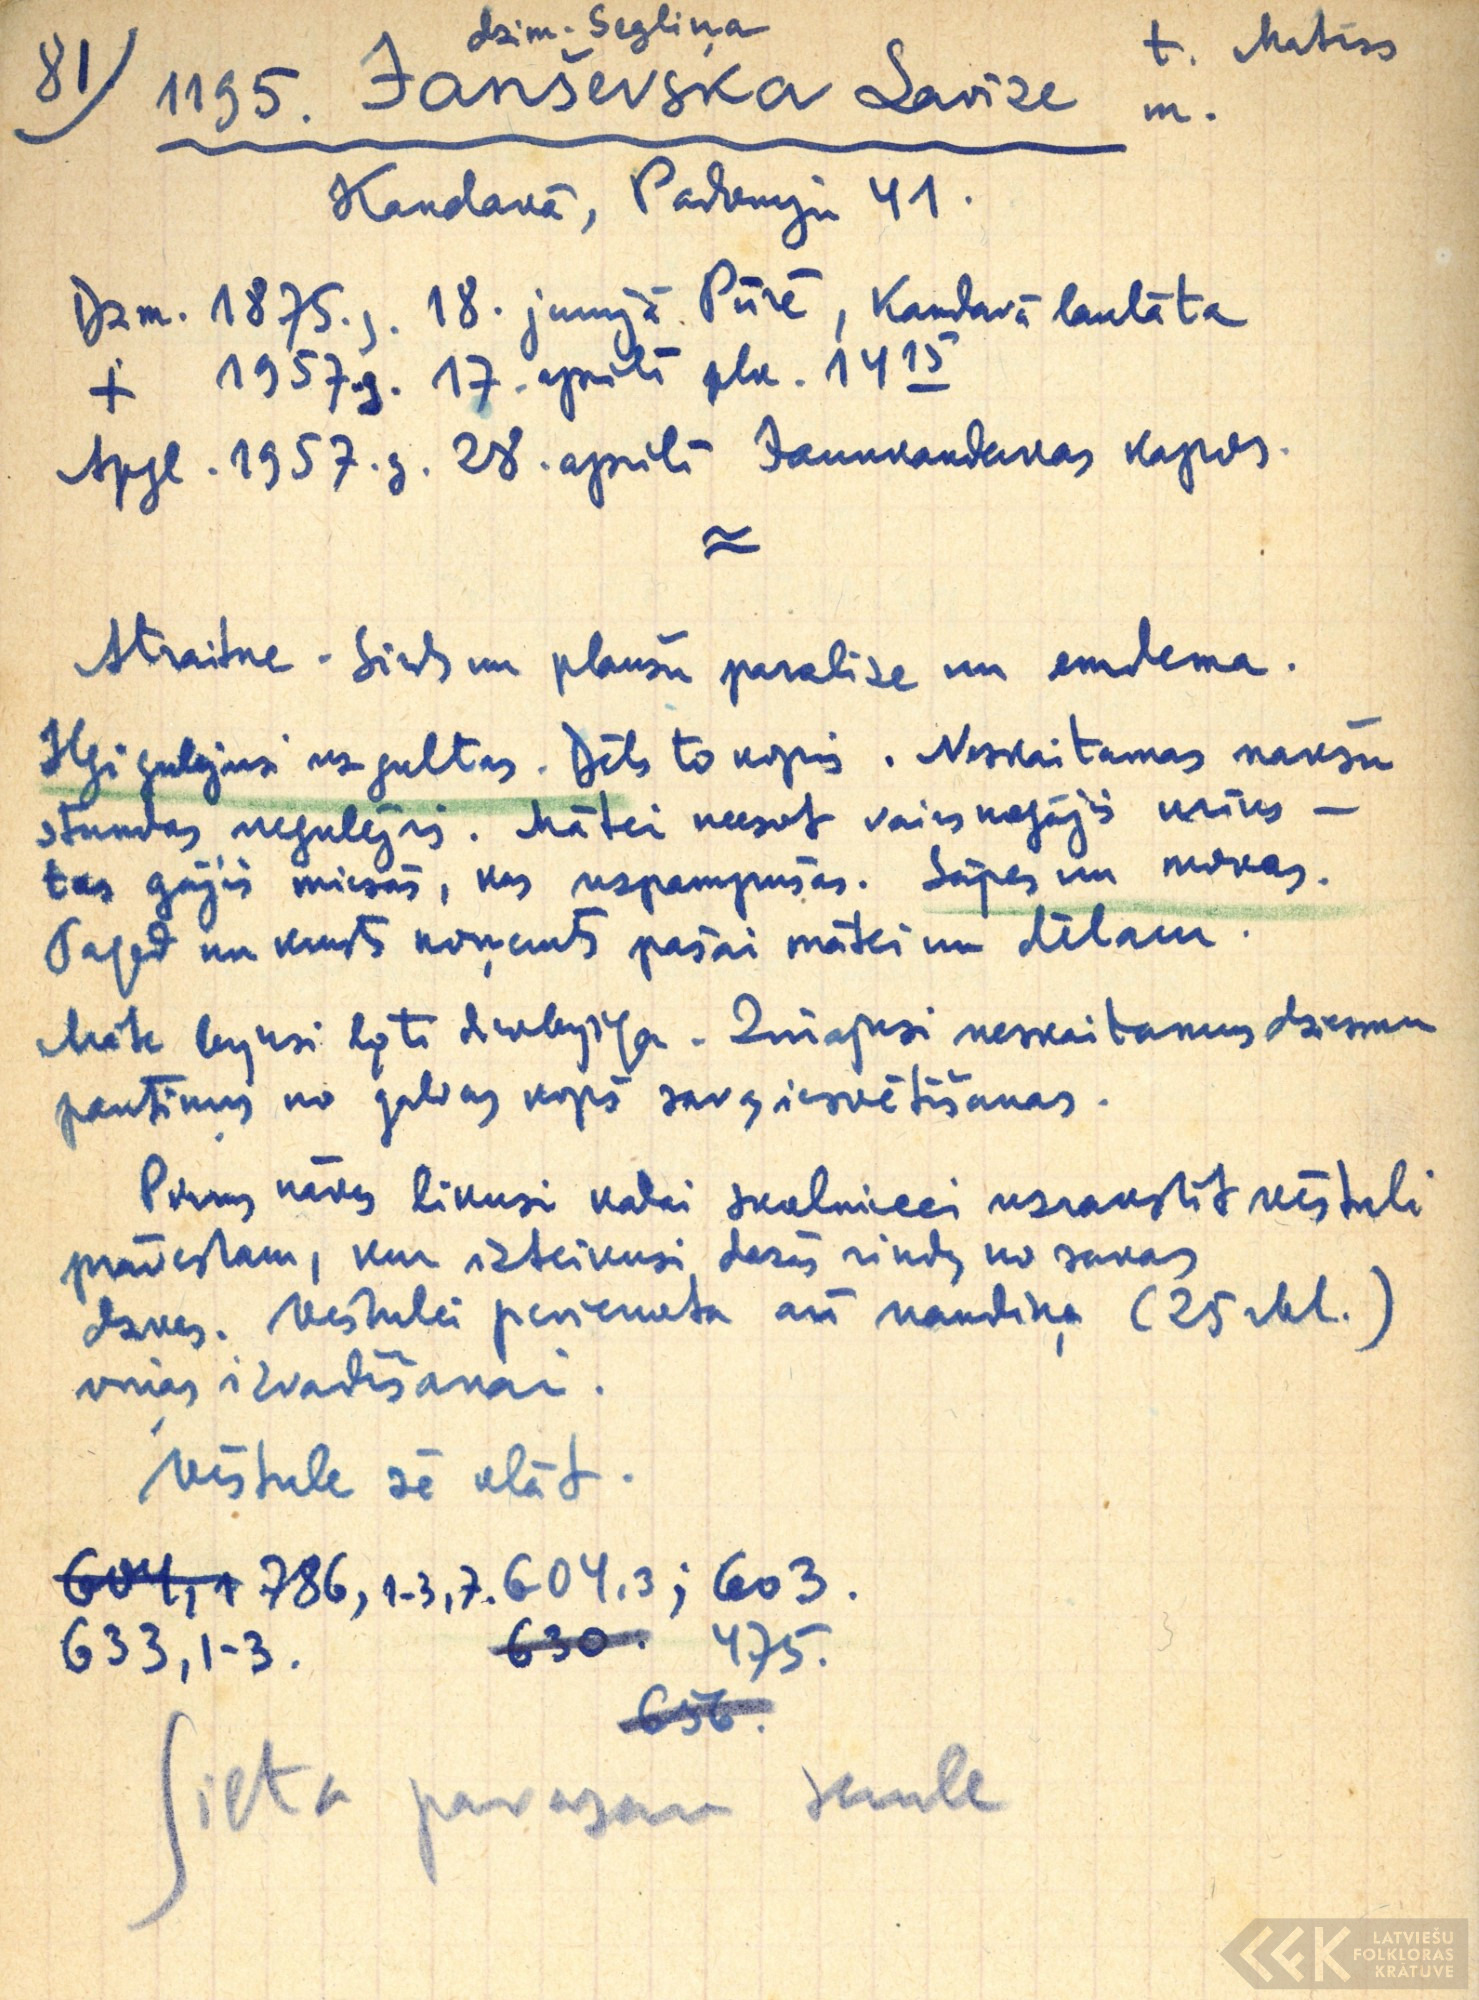 dzim. Segliņa
81) 1195. Janševska Lavīze
t. Matīss
m.
Kandavā, 41.
Dzm. 1875.g. 18. jūnijā Pūrē, Kandavā laulāta
+ 1957.g. 17. aprīlī plk. 14 15
Apgl. 1957.g. 28. aprīlī Jaunkandavas kapos.
≈
Atraitne. Sirds un plaušu paralīze un emdema.
Ilgi gulējusi uz gultas. Dēls to kopis. Neskaitamas nakšu
stundas negulējis. Mātei neesot vairs nogājis ūdens –
tas gājis miesās, kas uzpampušas. Sāpes un mokas.
Pagod un krusts noņemts pašai mātei un dēlam.
Māte bijusi ļoti dievbijīga. Zinājusi neskaitamus dziesmu
pantiņus no galvas kopš savas iesvētīšanas.
Pirms nāves likusi kādai skolniecei uzrakstīt vēstuli
prāvestam, kur izteikusi dažas rindas no savas
dzīves. Vēstulei pievienota arī naudiņa (25 rbl.)
viņas izvadīšanai.
Vēstule šē klāt.
604, 1 786, 1-3, 7. 604.3; 603.
633, 1-3. 630. 475.
656.
Sieta pavasara saule
LATVIEŠU
FOLKLORAS
KRĀTUVE